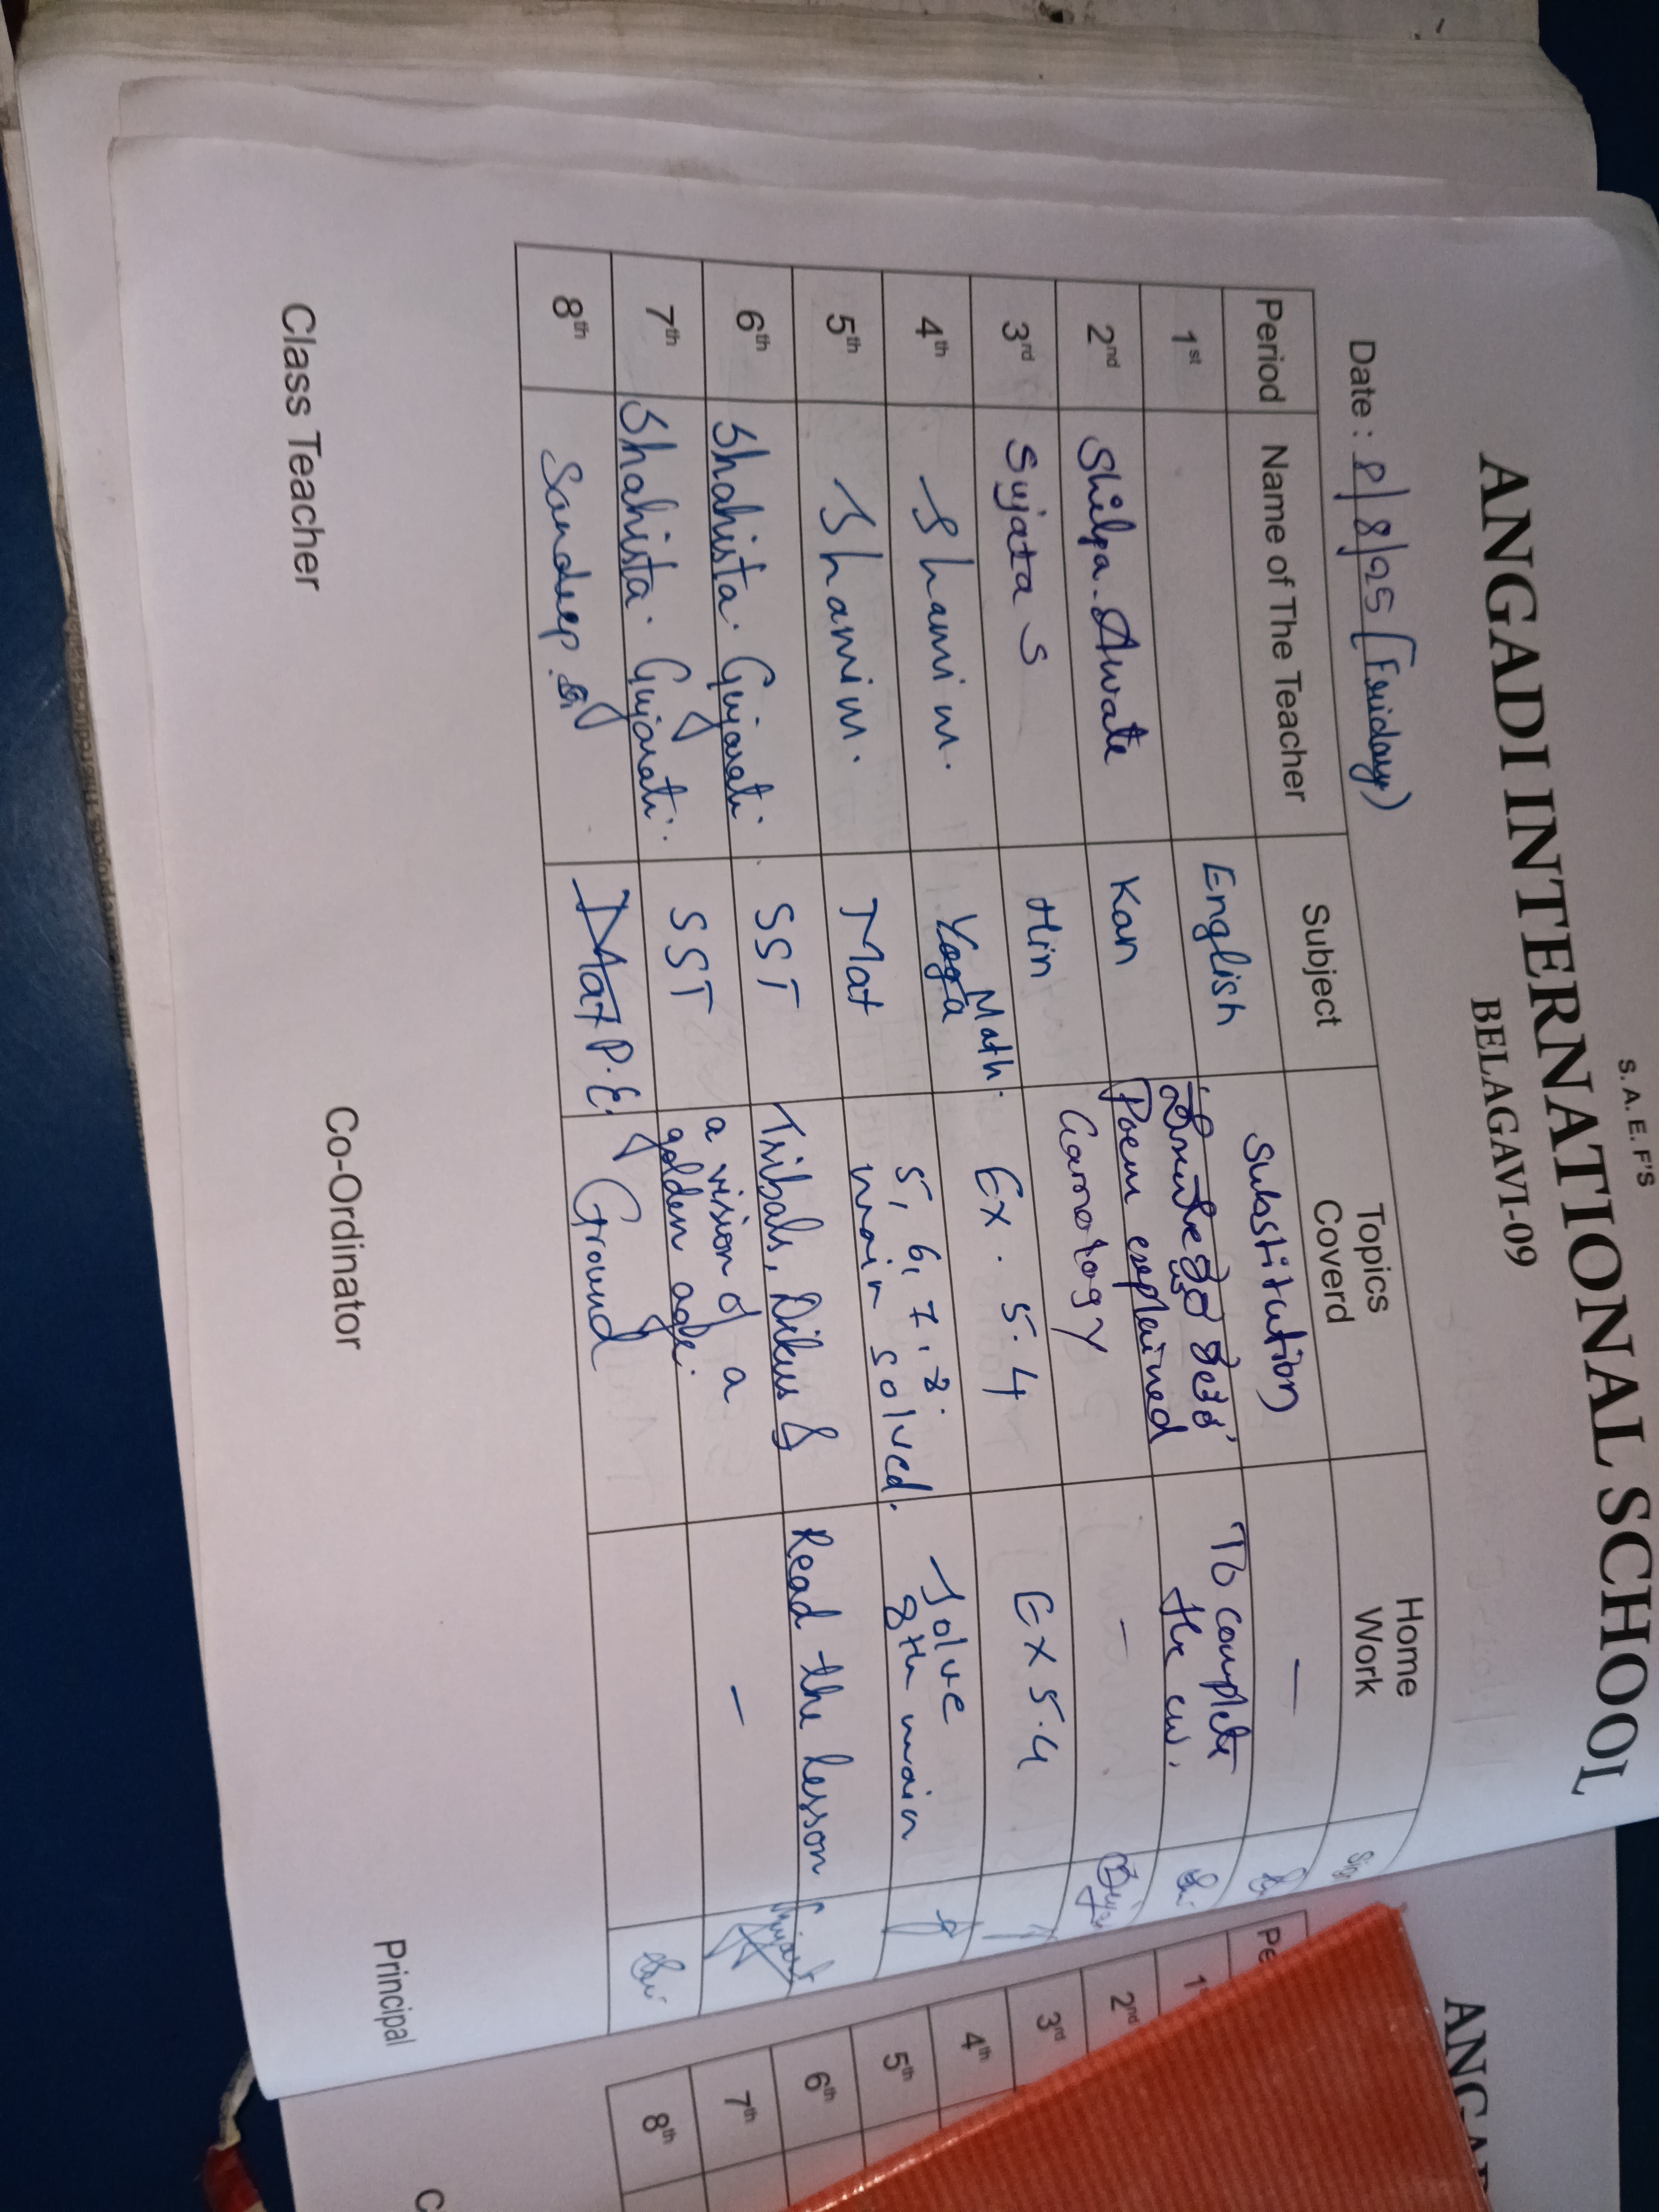 S. A. E. F'S
ANGADI INTERNATIONAL SCHOOL
BELAGAVI-09
Date : 8/8/25 (Friday)
Period Name of The Teacher Subject Topics Coverd Home Work
1st English Substitution —
2nd Shilpa. Awate Kan Poem explained To complete the cw.
3rd Sujata S Hin —
4th Shamim. Yoga Math. Ex. 5.4 Ex 5.4
5th Shamim. Mat 5, 6, 7, 8. main solved. Solve 8th main
6th Shahista. Gujarati. SST Tribals, Dikus & Read the lesson
7th Shahista. Gujarati. SST a vision of a golden age. —
8th Sandeep Mat P.E. Ground
Class Teacher Co-Ordinator Principal
ANGA
Pe
1s
2nd
3rd
4th
5th
6th
7th
8th
C